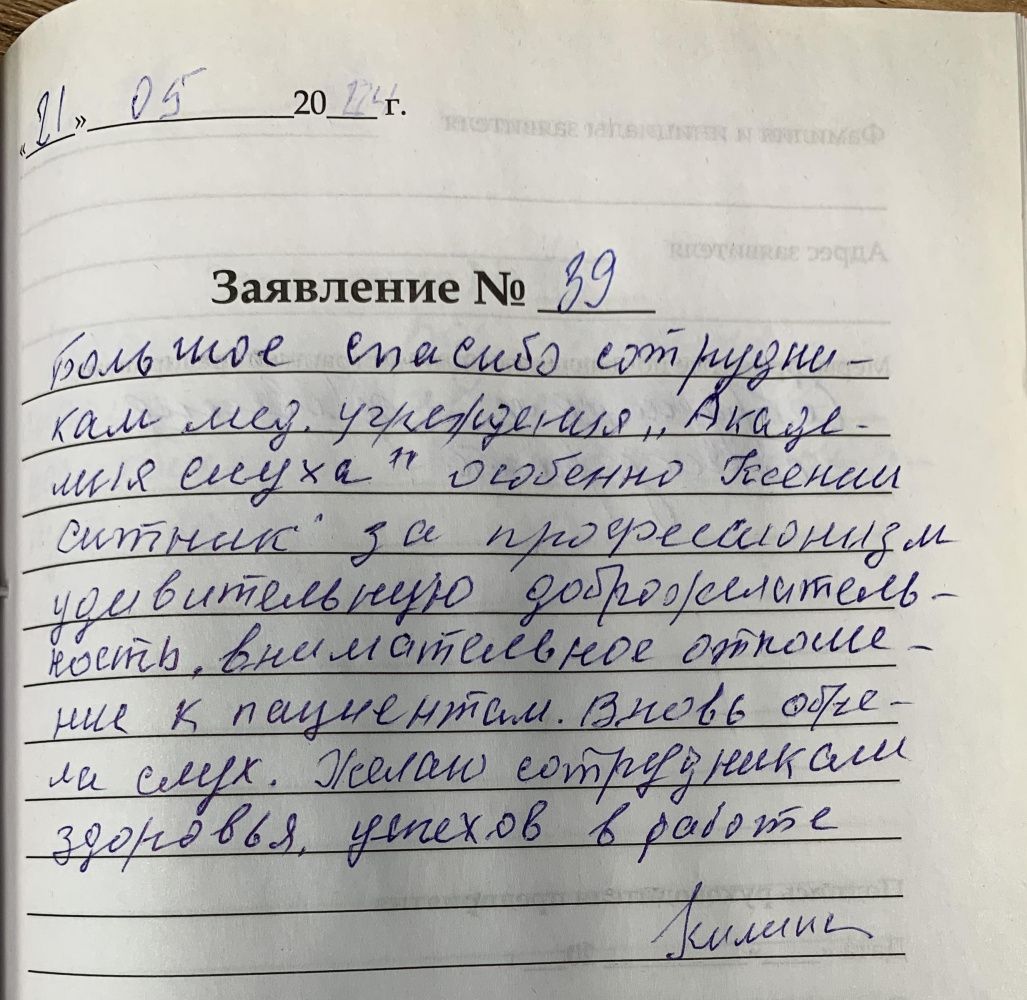 «21» 05 2024 г.
Заявление № 39
Большое спасибо сотрудни-
кам мед. учреждения „Акаде-
мия слуха" особенно Ксении
Ситник за профессионизм
удивительную доброжелатель-
ность, внимательное отноше-
ние к пациентам. Вновь обре-
ла слух. Желаю сотрудникам
здоровья, успехов в работе